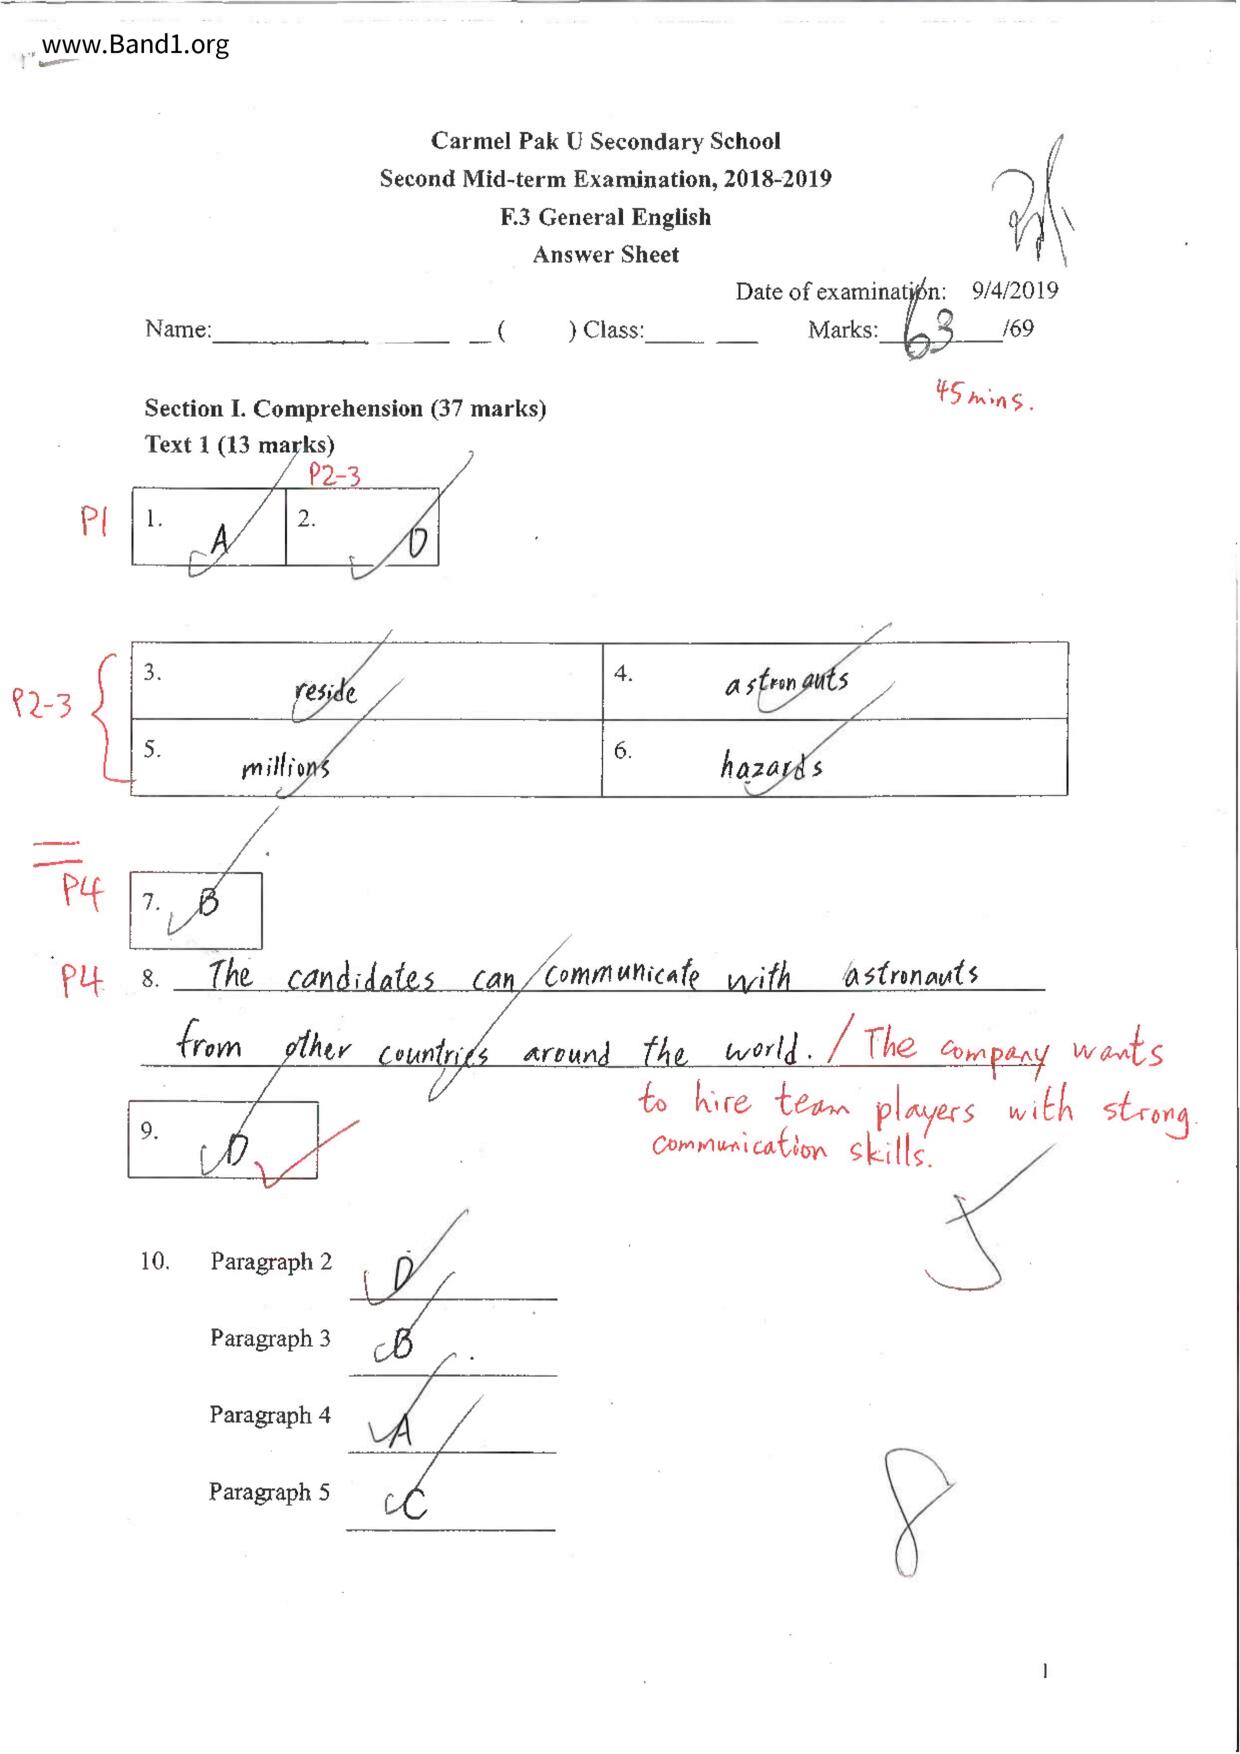 www.Band1.org
Carmel Pak U Secondary School
Second Mid-term Examination, 2018-2019
F.3 General English
Answer Sheet
Date of examination: 9/4/2019
Name: ( ) Class: Marks: 63 /69
45 mins.
Section I. Comprehension (37 marks)
Text 1 (13 marks)
P2-3
P1 1. A 2. D
P2-3
3. reside 4. astronauts
5. millions 6. hazards
P4 7. B
P4 8. The candidates can communicate with astronauts
from other countries around the world. / The company wants
to hire team players with strong
communication skills.
9. D
5
10. Paragraph 2 D
Paragraph 3 B
Paragraph 4 A
Paragraph 5 C
8
1